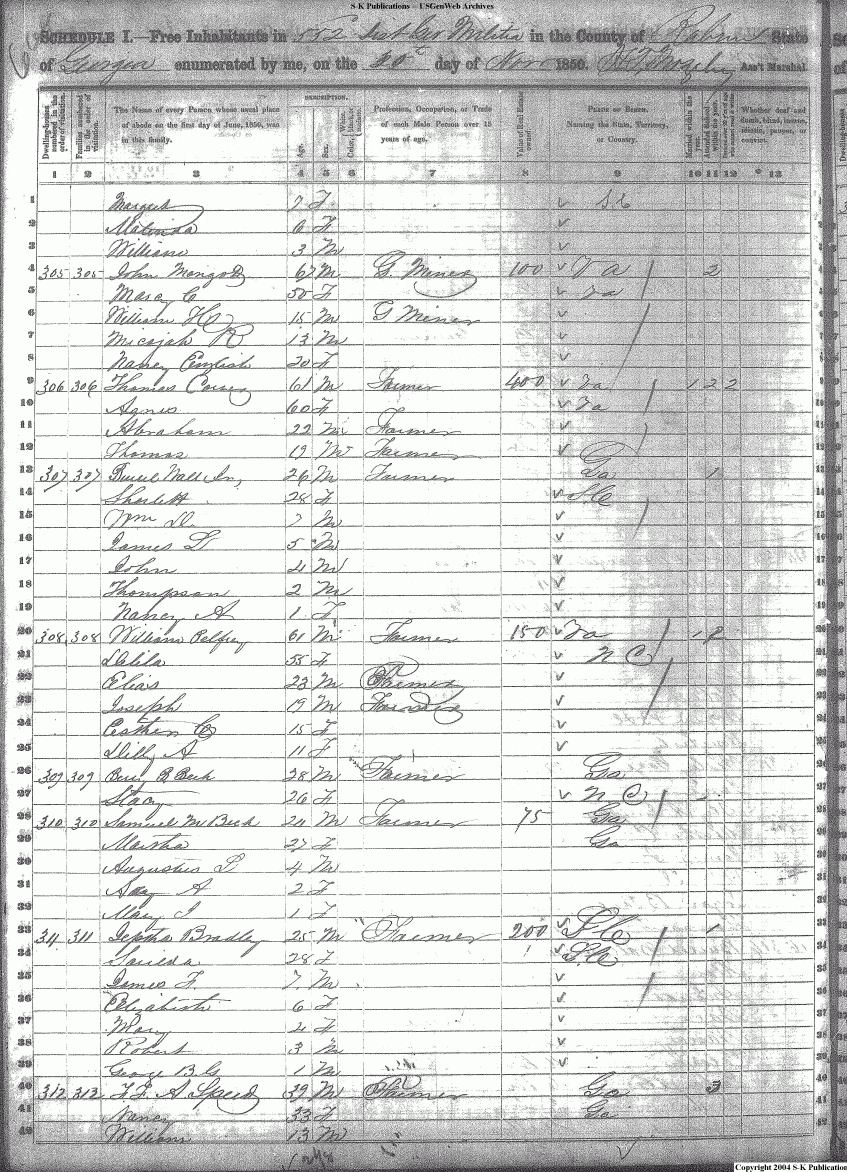 S-K Publications – USGenWeb Archives
SCHEDULE I.—Free Inhabitants in 552 Dist Ga Militia in the County of Rabun State
of Georgia enumerated by me, on the 20th day of Nov 1850. Ass't Marshal
Dwelling-houses numbered in the order of visitation.
Families numbered in the order of visitation.
The Name of every Person whose usual place of abode on the first day of June, 1850, was in this family.
DESCRIPTION.
Age.
Sex.
Profession, Occupation, or Trade of each Male Person over 15 years of age.
Value of Real Estate owned.
PLACE OF BIRTH. Naming the State, Territory, or Country.
Married within the year.
Whether deaf and dumb, blind, insane, idiotic, pauper, or convict.
1 2 3 4 5 6 7 8 9 10 11 12 13
1 Margaret 7 F S.C
2 Malinda 6 F
3 William 3 M
4 305 305 John 67 M G. Miner 100 Va 2
5 Mary C 50 F Va
6 William H 15 M G Miner
7 Micajah R 13 M
8 Nancy English 20 F
9 306 306 Thomas 61 M Farmer 400 Va 1 2 2
10 Agnes 60 F Va
11 Abraham 22 M Farmer
12 Thomas 19 M Farmer
13 307 307 26 M Farmer Ga 1
14 28 F SC
15 Wm D. 7 M
16 James L 5 M
17 John 4 M
18 Thompson 2 M
19 Nancy A 1 F
20 308 308 William Pelfrey 61 M Farmer 150 Va
21 Delila 55 F N C
22 Elias 23 M Farmer
23 Joseph 19 M Farmer
24 Esther C 15 F
25 Dilly A 11 F
26 309 309 Beck 28 M Farmer Ga
27 Stacy 26 F N C
28 310 310 Samuel M Beck 24 M Farmer 75 Ga
29 Martha 27 F Ga
30 Augustus L 4 M
31 A 2 F
32 Mary J 1 F
33 311 311 Jeptha Bradley 25 M Farmer 200 S.C 1
34 28 F S.C
35 James F. 7 M
36 Elizabeth 6 F
37 Mary 4 F
38 Robert 3 M
39 George B G 1 M
40 312 312 A Speed 39 M Farmer Ga 3
41 Nancy 33 F Ga
42 William 13 M
Copyright 2004 S-K Publications